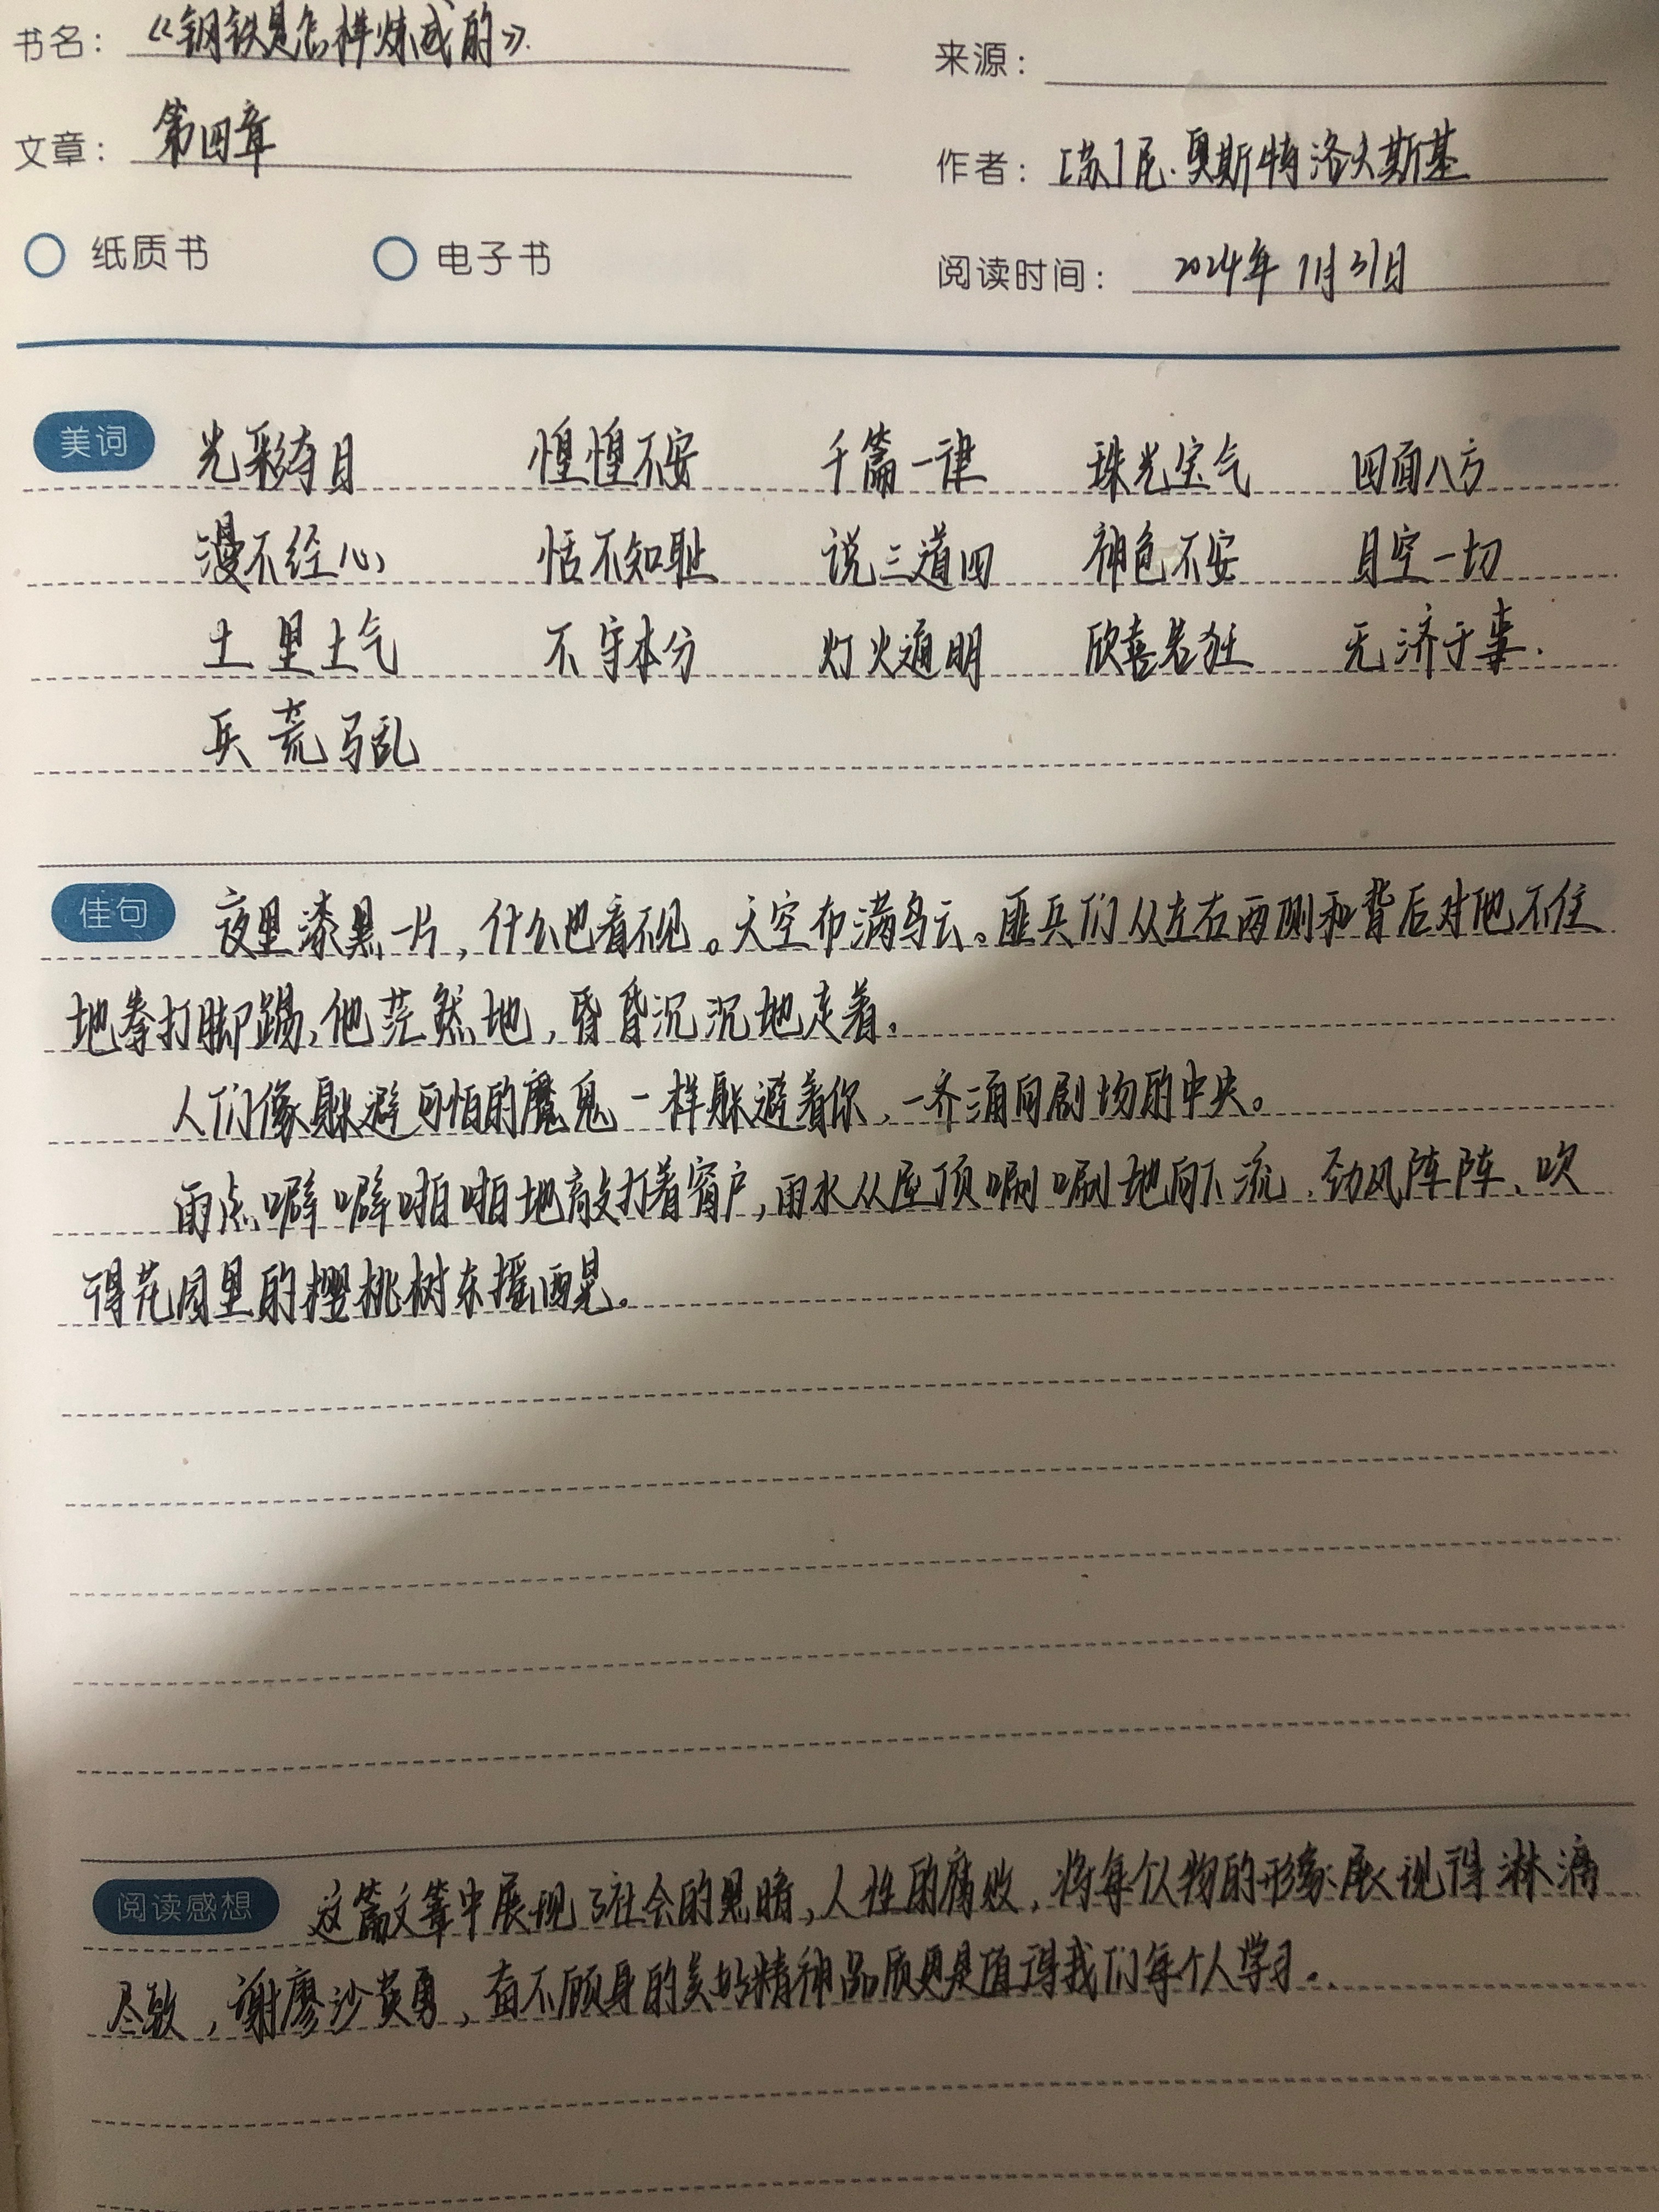 书名： 《钢铁是怎样炼成的》.
来源：
文章： 第四章
作者： [苏]尼·奥斯特洛夫斯基
纸质书 电子书
阅读时间： 2024年7月31日
美词 光彩夺目 惶惶不安 千篇一律 珠光宝气 四面八方
漫不经心 恬不知耻 说三道四 神色不安 目空一切
土里土气 不守本分 灯火通明 欣喜若狂 无济于事.
兵荒马乱
佳句 夜里漆黑一片，什么也看不见。天空布满乌云。匪兵们从左右两侧和背后对他不住
地拳打脚踢，他茫然地，昏昏沉沉地走着。
人们像躲避可怕的魔鬼一样躲避着你，一齐涌向剧场的中央。
雨点噼噼啪啪地敲打着窗户，雨水从屋顶唰唰地向下流，劲风阵阵、吹
得花园里的樱桃树东摇西晃。
阅读感想 这篇文章中展现了社会的黑暗，人性的腐败，将每个人物的形象展现得淋漓
尽致，谢廖沙英勇，奋不顾身的美好精神品质更是值得我们每个人学习。